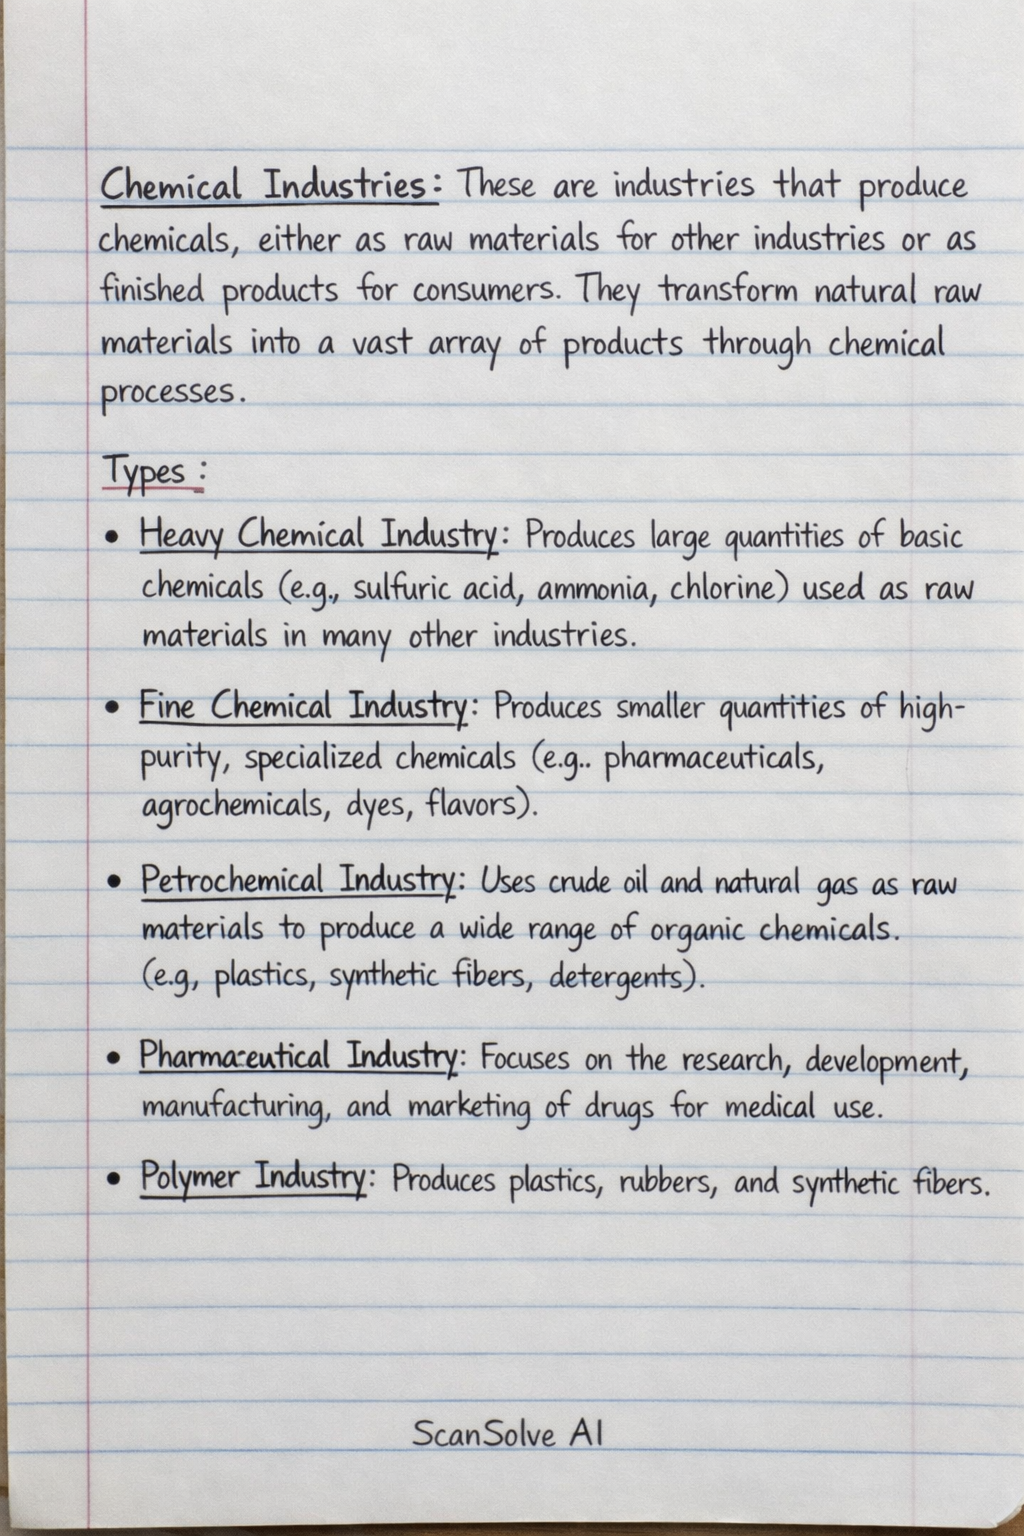 Chemical Industries: These are industries that produce
chemicals, either as raw materials for other industries or as
finished products for consumers. They transform natural raw
materials into a vast array of products through chemical
processes.
Types :
• Heavy Chemical Industry: Produces large quantities of basic
chemicals (e.g., sulfuric acid, ammonia, chlorine) used as raw
materials in many other industries.
• Fine Chemical Industry: Produces smaller quantities of high-
purity, specialized chemicals (e.g.. pharmaceuticals,
agrochemicals, dyes, flavors).
• Petrochemical Industry: Uses crude oil and natural gas as raw
materials to produce a wide range of organic chemicals.
(e.g, plastics, synthetic fibers, detergents).
• Pharmaceutical Industry: Focuses on the research, development,
manufacturing, and marketing of drugs for medical use.
• Polymer Industry: Produces plastics, rubbers, and synthetic fibers.
ScanSolve AI